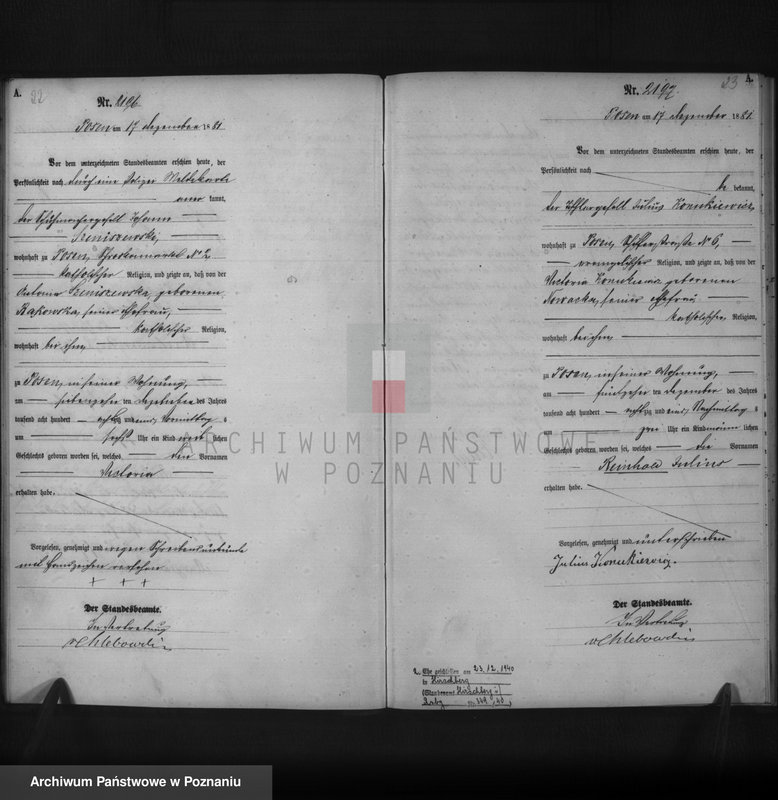 A. 22
Nr. 2196
Posen am 17 Dezember 1881
Vor dem unterzeichneten Standesbeamten erschien heute, der
Persönlichkeit nach durch eine
kannt,
der Johann
Szeniszewski,
wohnhaft zu Posen, No 2,
katholischer Religion, und zeigte an, daß von der
Antonia Szeniszewska, geborenen
Rakowska, seiner Ehefrau,
katholischer Religion,
wohnhaft bei ihm
zu Posen, in seiner Wohnung,
am siebenzehnten Dezember des Jahres
tausend acht hundert achtzig und eins, Vormittag s
um sechs Uhr ein Kind weiblichen
Geschlechts geboren worden sei, welches den Vornamen
Victoria
erhalten habe.
Vorgelesen, genehmigt und wegen Schreibensunkunde
mit Handzeichen versehen
+ + +
Der Standesbeamte.
In Vertretung
23 A.
Nr. 2197.
Posen am 17 Dezember 1881.
Vor dem unterzeichneten Standesbeamten erschien heute, der
Persönlichkeit nach
be kannt,
der Julius Konukiewicz
wohnhaft zu Posen, No 6,
evangelischer Religion, und zeigte an, daß von der
Victoria geborenen
Nowacka, seiner Ehefrau
katholischer Religion,
wohnhaft bei ihm
zu Posen, in seiner Wohnung,
am fünfzehnten Dezember des Jahres
tausend acht hundert achtzig und eins, Nachmittag s
um zwei Uhr ein Kind männlichen
Geschlechts geboren worden sei, welches die Vornamen
Reinhold Julius
erhalten habe.
Vorgelesen, genehmigt und unterschrieben
Julius Konukiewicz.
Der Standesbeamte.
In Vertretung
Ehe geschlossen am 23.12.1940
in Hirschberg
(Standesamt Hirschberg i/
ARCHIWUM PAŃSTWOWE
W POZNANIU
Archiwum Państwowe w Poznaniu